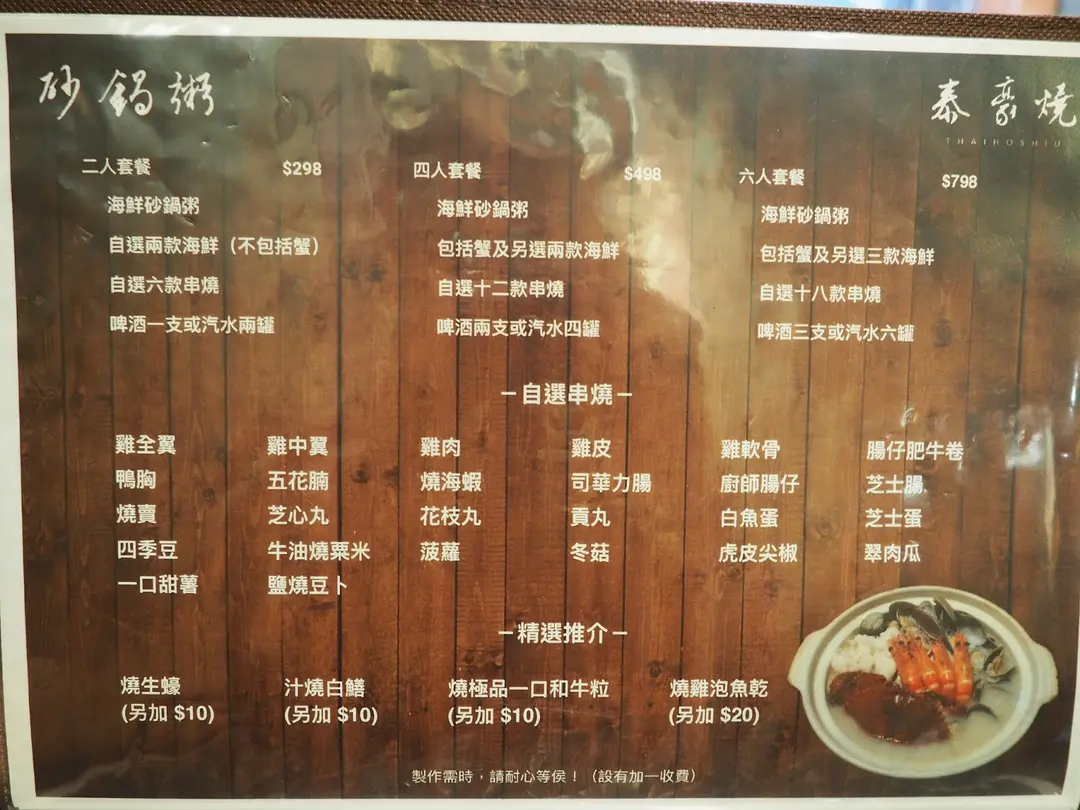 砂鍋粥
泰豪燒
THAIHOSHIU
二人套餐 $298
海鮮砂鍋粥
自選兩款海鮮（不包括蟹）
自選六款串燒
啤酒一支或汽水兩罐
四人套餐 $498
海鮮砂鍋粥
包括蟹及另選兩款海鮮
自選十二款串燒
啤酒兩支或汽水四罐
六人套餐 $798
海鮮砂鍋粥
包括蟹及另選三款海鮮
自選十八款串燒
啤酒三支或汽水六罐
－自選串燒－
雞全翼 雞中翼 雞肉 雞皮 雞軟骨 腸仔肥牛卷
鴨胸 五花腩 燒海蝦 司華力腸 廚師腸仔 芝士腸
燒賣 芝心丸 花枝丸 貢丸 白魚蛋 芝士蛋
四季豆 牛油燒粟米 菠蘿 冬菇 虎皮尖椒 翠肉瓜
一口甜薯 鹽燒豆卜
－精選推介－
燒生蠔 汁燒白鱔 燒極品一口和牛粒 燒雞泡魚乾
(另加 $10) (另加 $10) (另加 $10) (另加 $20)
製作需時，請耐心等侯！（設有加一收費）